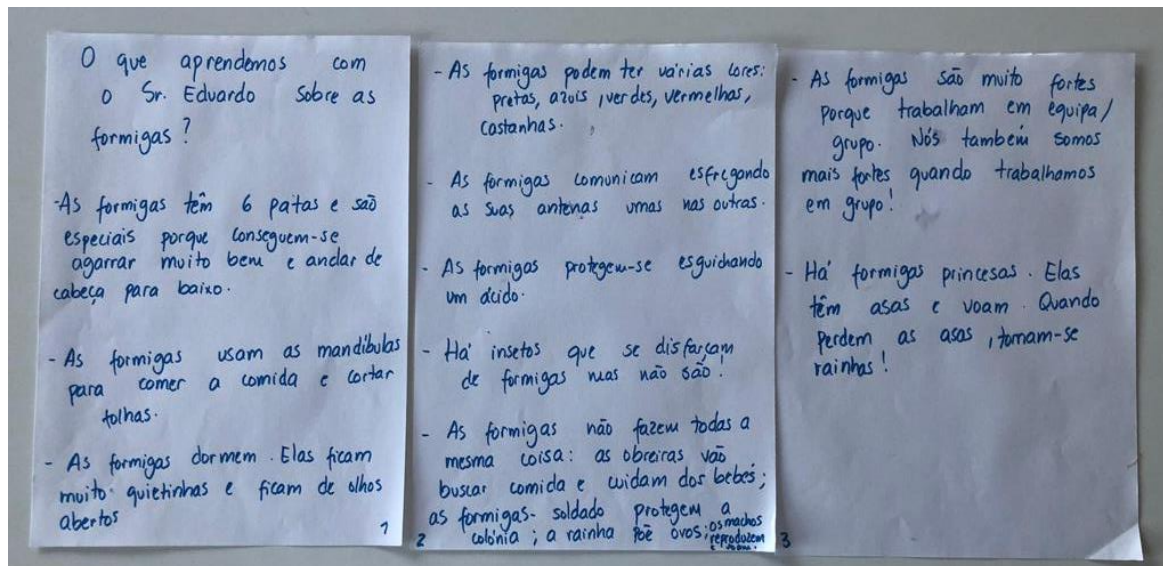 O que aprendemos com
o Sr. Eduardo Sobre as
formigas?
-As formigas têm 6 patas e são
especiais porque conseguem-se
agarrar muito bem e andar de
cabeça para baixo.
- As formigas usam as mandíbulas
para comer a comida e cortar
folhas.
- As formigas dormem. Elas ficam
muito quietinhas e ficam de olhos
abertos
1
- As formigas podem ter várias cores:
pretas, azuis, verdes, vermelhas,
castanhas.
- As formigas comunicam esfregando
as suas antenas umas nas outras.
- As formigas protegem-se esguichando
um ácido.
- Há insetos que se disfarçam
de formigas mas não são!
- As formigas não fazem todas a
mesma coisa: as obreiras vão
buscar comida e cuidam dos bebés;
as formigas-soldado protegem a
colónia; a rainha põe ovos; os machos
reproduzem
2
- As formigas são muito fortes
porque trabalham em equipa/
grupo. Nós também somos
mais fortes quando trabalhamos
em grupo!
- Há formigas princesas. Elas
têm asas e voam. Quando
perdem as asas, tornam-se
rainhas!
3